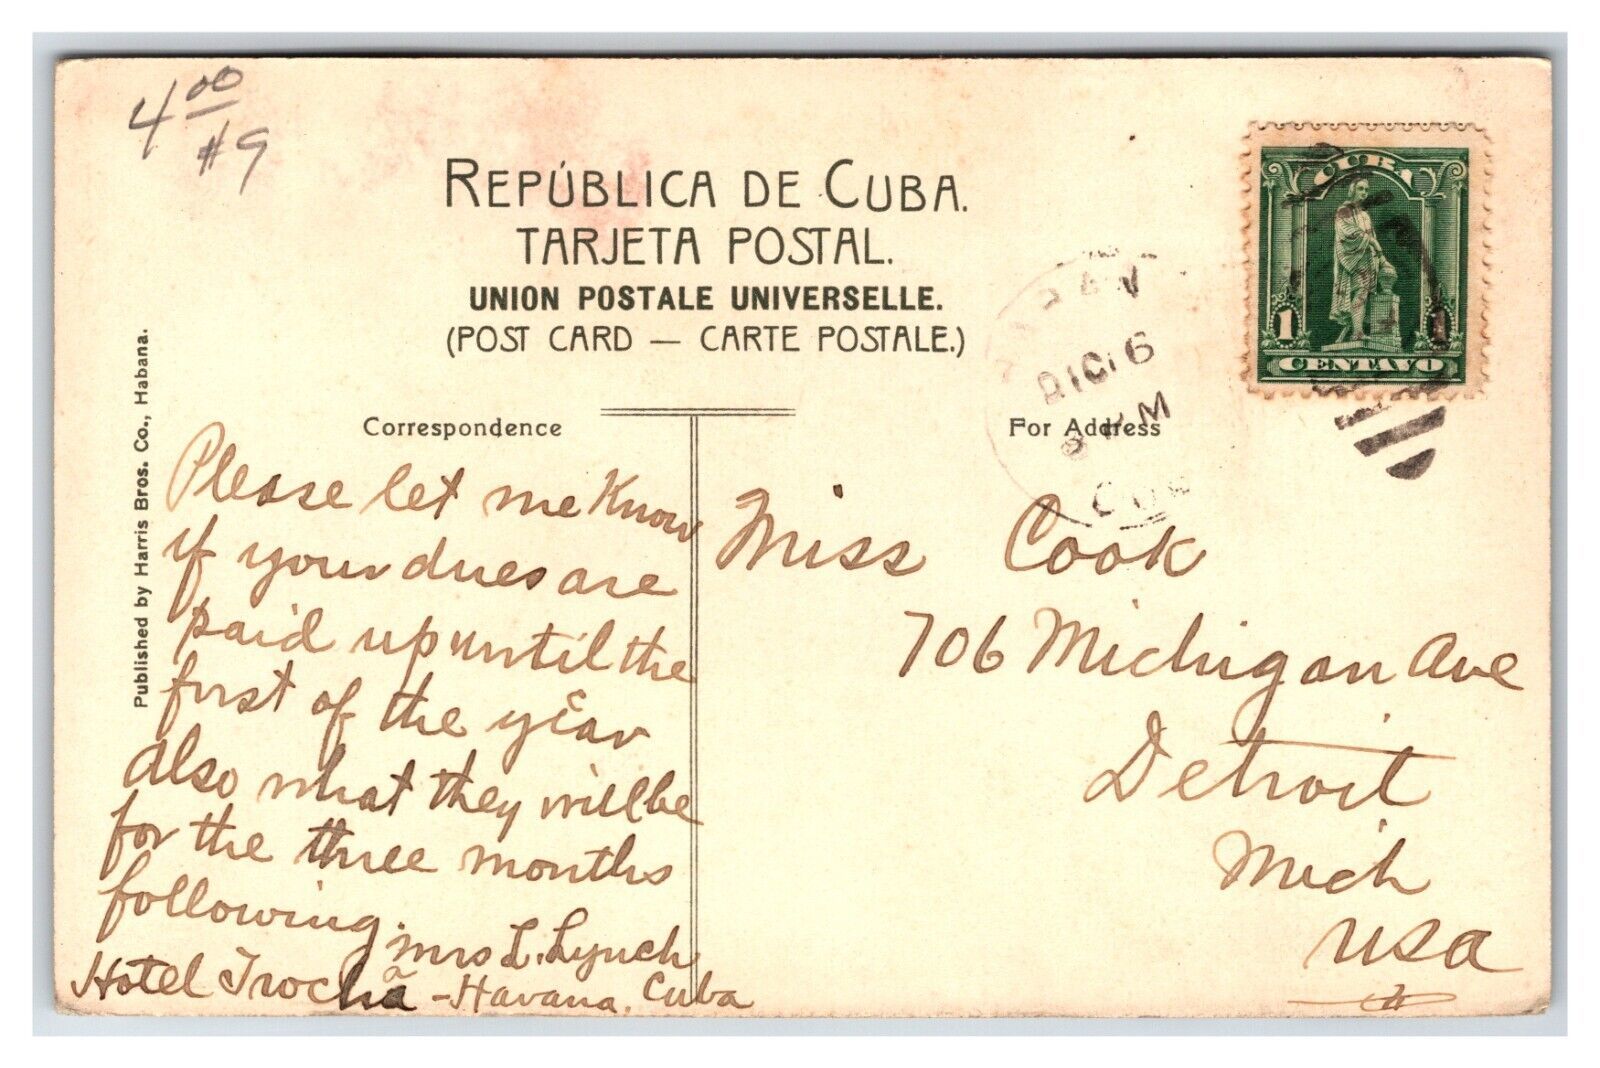 4.00
#9
REPÚBLICA DE CUBA.
TARJETA POSTAL.
UNION POSTALE UNIVERSELLE.
(POST CARD — CARTE POSTALE.)
Published by Harris Bros. Co., Habana.
Correspondence
For Address
DIC 16
PM
1 1
CENTAVO
Please let me Know
if your dues are
paid up until the
first of the year
also what they will be
for the three months
following.
Mrs L. Lynch
Hotel Trocha - Havana, Cuba
Miss Cook
706 Michigan Ave
Detroit
Mich
USA